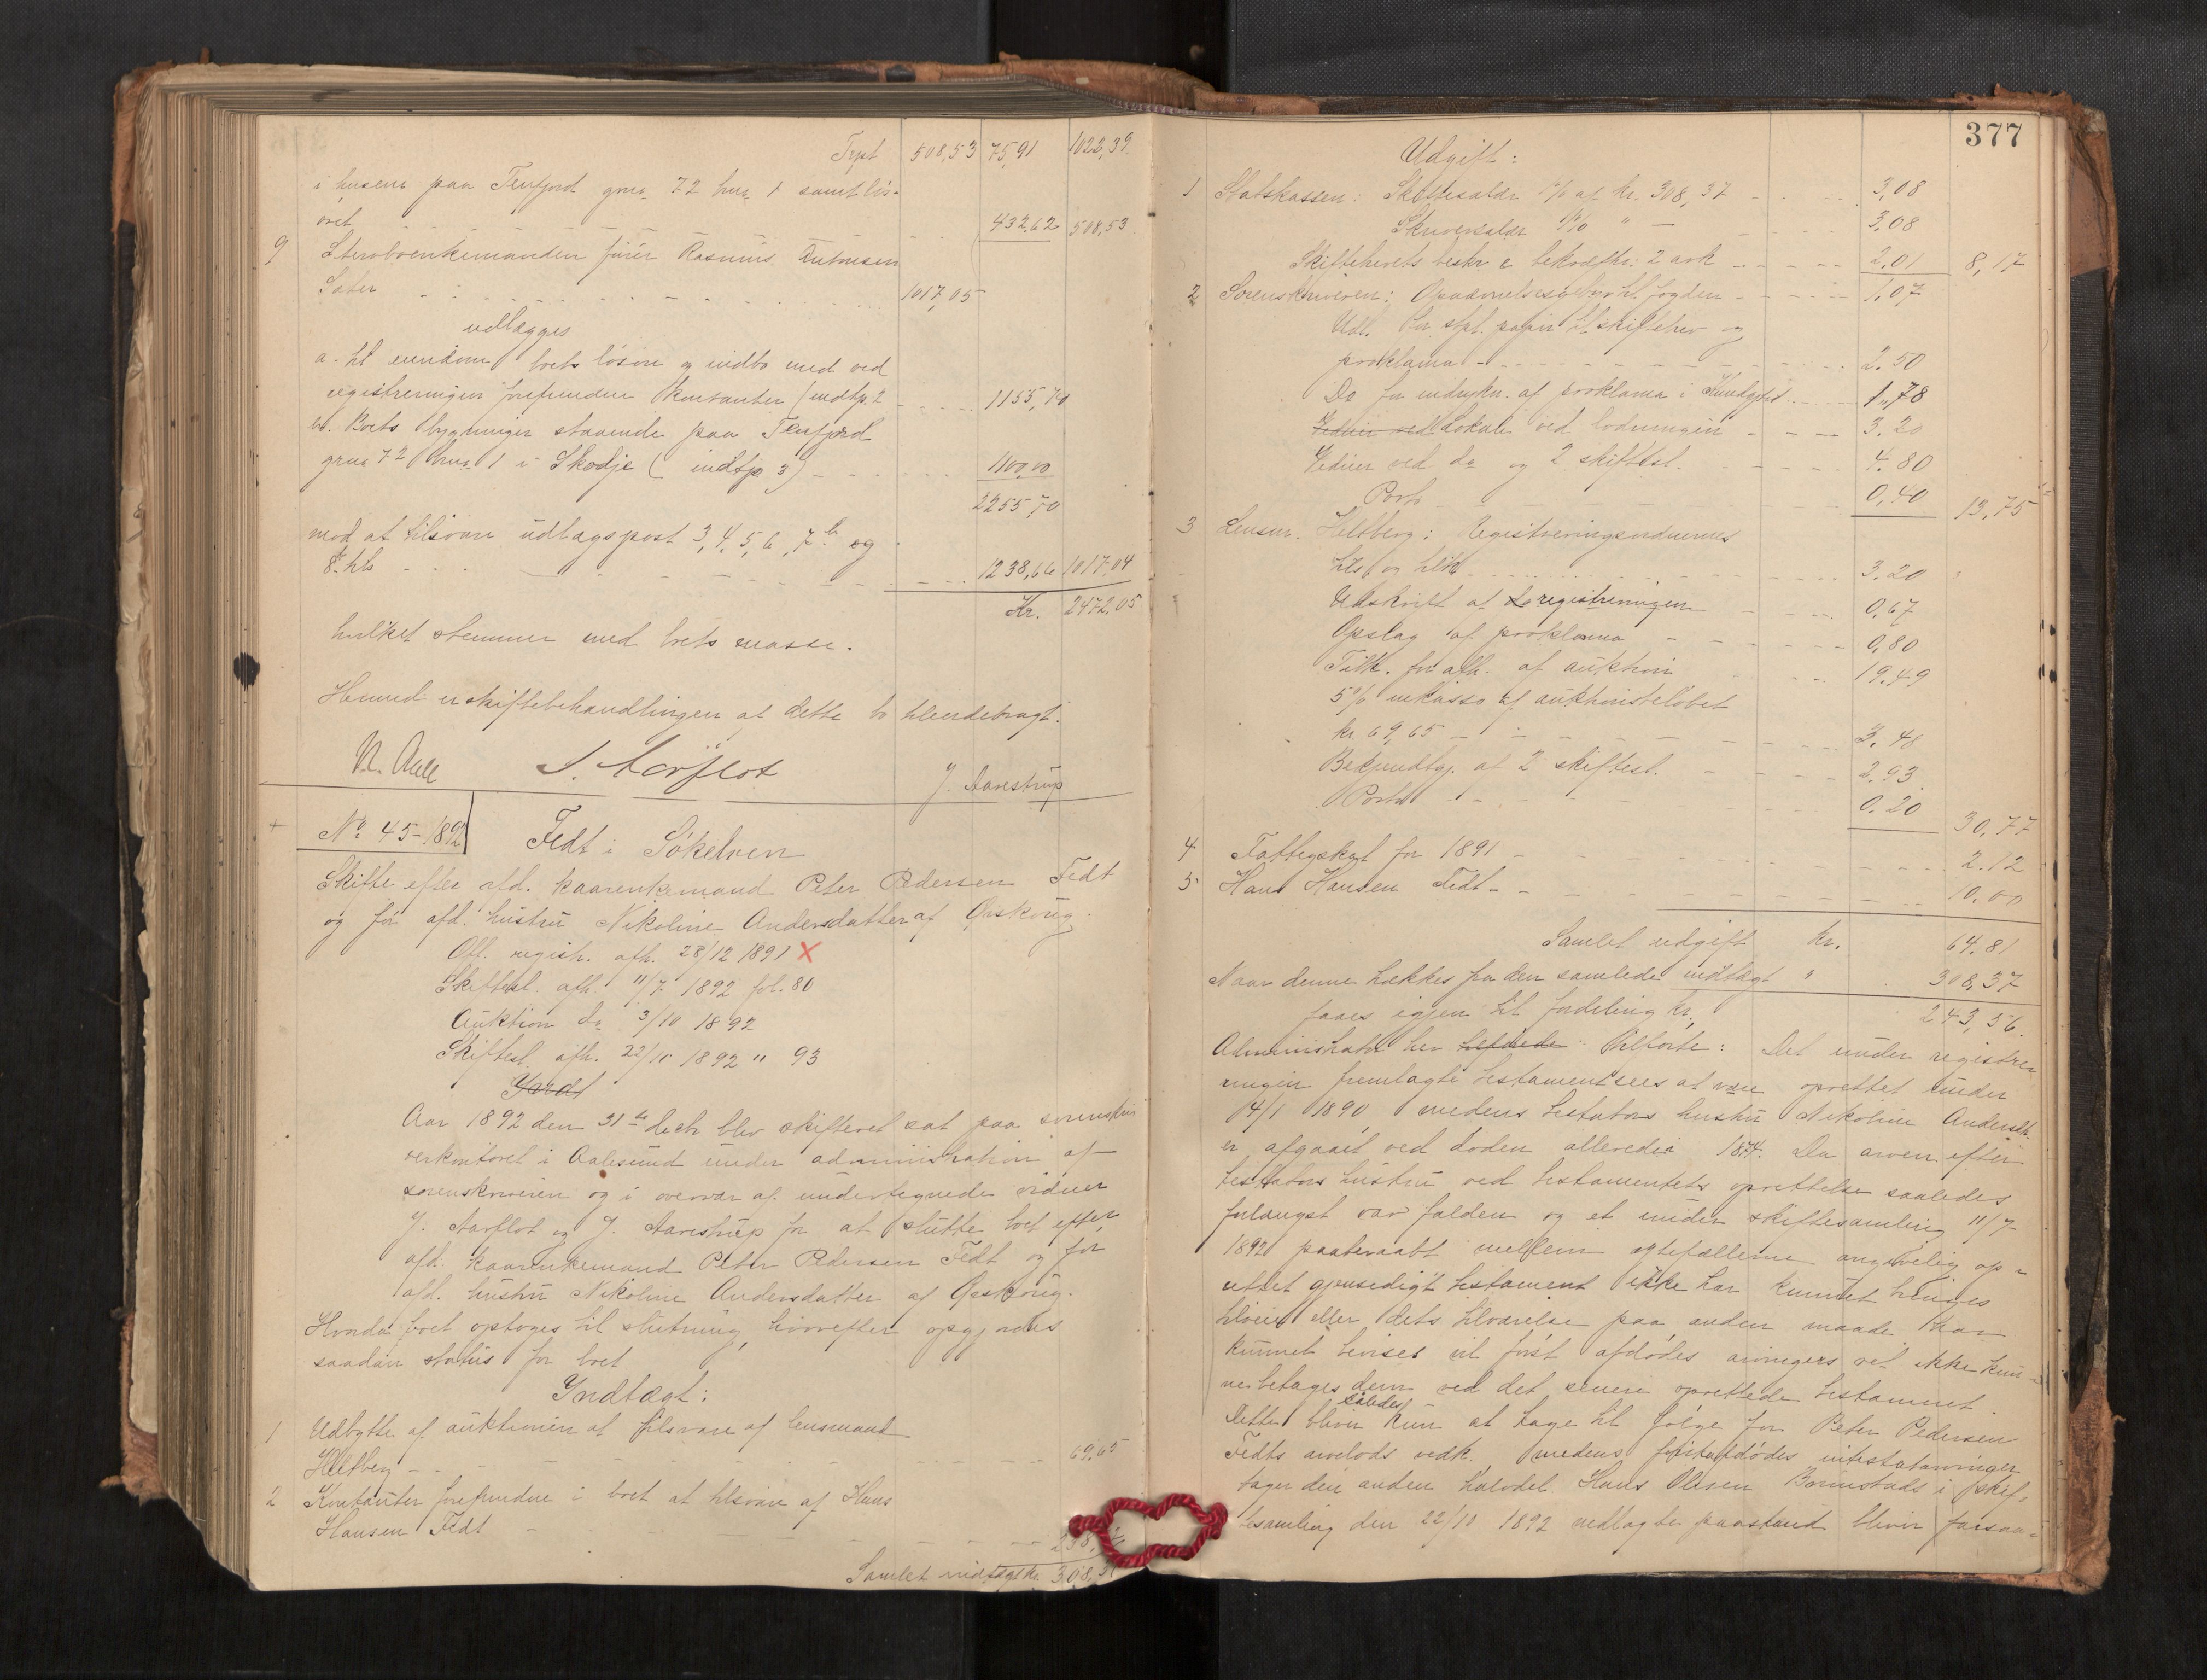 Trpt 508,53 75,91 1022,39
i husene paa Tenfjord grno 72 brno 1 samt løs-
øret 432,62 508,53
9 Sterboenkemanden furer Rasmus Antonsen
Sæter 1017,05
udlægges
a. til eiendom boets løsøre og indbo med ved
registreringen forefundne kontanter (indtp. 2 1155,70
b. Boets bygninger staaende paa Tenfjord
grno 72 brno 1 i Skodje (indtp 3) 1100,00
2255 70
mod at tilsvare udlagspost 3, 4, 5, 6, 7 b og
8. tils 1238,66 1017,04
Kr. 2472,05
hvilket stemmer med boets masse.
Hermed er skiftebehandlingen af dette bo tilendebragt.
N. Aall J. Aarflot J. Aarestrup
No 45-1892 Fedt i Søkelven
Skifte efter afd. kaarenkemand Peter Pedersen Fedt
og før afd. hustru Nikoline Andersdatter af Ørskoug.
Off. registr. afh. 28/12 1891 X
Skiftesl. afh. 11/7 1892 fol. 80
Auktion do 3/10 1892
Skiftesl. afh. 22/10 1892 " 93
Aar 1892 den 31te decbr blev skifteret sat paa sorenskri
verkontoret i Aalesund under administration af
sorenskriveren og i overvær af undertegnede vidner
J. Aarflot og J. Aarestrup for at slutte boet efter
afd. kaarenkemand Peter Pedersen Fedt og før
afd. hustru Nikoline Andersdatter af Ørskoug.
Hvorda boet optoges til slutning, hvorefter opgjordes
saadan status for boet
Indtægt:
1 Udbytte af auktionen at tilsvare af lensmand
Hellberg 69,65
2 Kontanter forefundne i boet at tilsvare af Hans
Hansen Fedt 238,
Samlet indtægt kr. 308,37
377
Udgift:
1 Statskassen: Skiftesalær 1% af kr. 308,37 3,08
Skriversalær 1% " 3,08
Skiftebrevets beskr. & bekræftn. 2 ark 2,01 8,17
2 Sorenskriveren: Opnævnelsesgebyr til fogden 1,07
Udl. for stpl. papir til skiftebrev og
proklama 2,50
Do for indrykn. af proklama i Kundgjtd. 1,78
Vidner ved Lokale ved lodningen 3,20
Vidner ved do og 2 skiftesl. 4,80
Porto 0,40 13,75
3 Lensm. Hellberg: Registreringsvidnernes
tils. og tilk. 3,20
Udskrift af registreringen 0,67
Opslag af proklama 0,80
Tilk. for afh. af auktion 19,49
5% inkasso af auktionsbeløbet
kr. 69,65 3,48
Bekjendtg. af 2 skiftesl. 2,93
Porto 0,20 30,77
4 Fattigskat for 1891 2,12
5 Hans Hansen Fedt 10,00
Samlet udgift kr. 64,81
Naar denne trækkes fra den samlede indtægt " 308,37
faaes igjen til fordeling kr. 243,56.
Administrator her tilførte: Det under registre-
ringen fremlagte testament sees at være oprettet under
14/1 1890, medens testators hustru Nikoline Andersdtr.
er afgaaet ved døden allerede i 1874. Da arven efter
testators hustru ved testamentets oprettelse saaledes
forlængst var falden og et under skiftesamling 11/7
1892 paaberaabt mellem ægtefællerne angivelig op-
rettet gjensidigt testament ikke har kunnet bringes
tilveie eller dets tilværelse paa anden maade har
kunnet bevises vil først afdødes arvingers ret ikke kun-
ne betages dem ved det senere oprettede testament.
Dette bliver saaledes kun at tage til følge for Peter Pedersen
Fedts arvelods vedk. medens førstafdødes intestatarvinger
tager den anden halvdel. Hans Olesen Brunstads i skif-
tesamling den 22/10 1892 nedlagte paastand bliver forsaa-